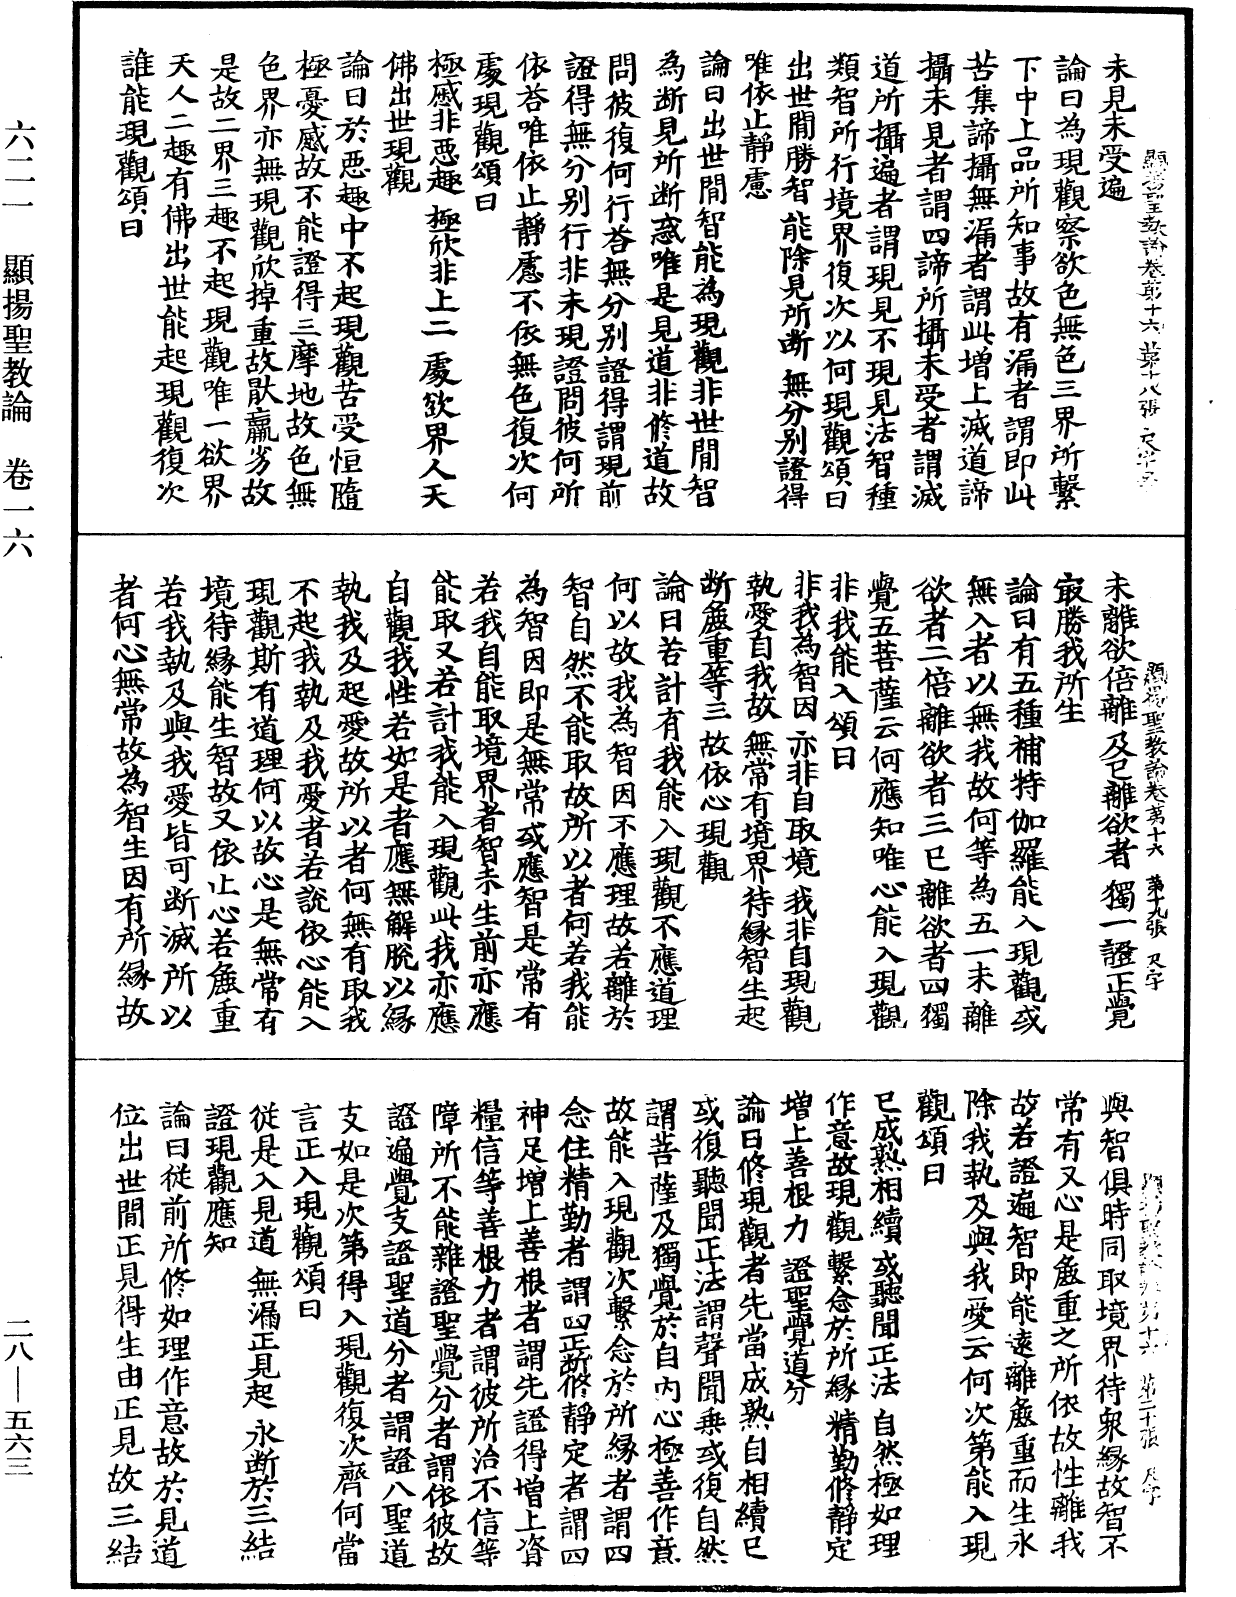 未見未受遍
論曰為現觀察欲色無色三界所繫
下中上品所知事故有漏者謂即此
苦集諦攝無漏者謂此增上滅道諦
攝未見者謂四諦所攝未受者謂滅
道所攝遍者謂現見不現見法智種
類智所行境界復次以何現觀頌曰
出世間勝智 能除見所斷 無分別證得
唯依止靜慮
論曰出世間智能為現觀非世間智
為斷見所斷惑唯是見道非修道故
問彼復何行荅無分別證得謂現前
證得無分別行非未現證問彼何所
依荅唯依止靜慮不依無色復次何
處現觀頌曰
極慼非惡趣 極欣非上二 處欲界人天
佛出世現觀
論曰於惡趣中不起現觀苦受恒隨
極憂慼故不能證得三摩地故色無
色界亦無現觀欣掉重故猒羸劣故
是故二界三趣不起現觀唯一欲界
天人二趣有佛出世能起現觀復次
誰能現觀頌曰
顯揚聖教論卷第十六 第十九張 尺字
未離欲倍離 及已離欲者 獨一證正覺
寂勝我所生
論曰有五種補特伽羅能入現觀或
無入者以無我故何等為五一未離
欲者二倍離欲者三已離欲者四獨
覺五菩薩云何應知唯心能入現觀
非我能入頌曰
非我為智因 亦非自取境 我非自現觀
執愛自我故 無常有境界 待緣智生起
斷麁重等三 故依心現觀
論曰若計有我能入現觀不應道理
何以故我為智因不應理故若離於
智自然不能取故所以者何若我能
為智因即是無常或應智是常有
若我自能取境界者智未生前亦應
能取又若計我能入現觀此我亦應
自觀我性若如是者應無解脫以緣
執我及起愛故所以者何無有取我
不起我執及我愛者若說依心能入
現觀斯有道理何以故心是無常有
境待緣能生智故又依止心若麁重
若我執及與我愛皆可斷滅所以
者何心無常故為智生因有所緣故
與智俱時同取境界待衆緣故智不
常有又心是麁重之所依故性離我
故若證遍智即能遠離麁重而生永
除我執及與我愛云何次第能入現
觀頌曰
已成熟相續 或聽聞正法 自然極如理
作意故現觀 繫念於所緣 精勤修靜定
增上善根力 證聖覺道分
論曰修現觀者先當成熟自相續已
或復聽聞正法謂聲聞乘或復自然
謂菩薩及獨覺於自內心極善作意
故能入現觀次繫念於所緣者謂四
念住精勤者謂四正斷修靜定者謂四
神足增上善根者謂先證得增上資
糧信等善根力者謂彼所治不信等
障所不能雜證聖覺分者謂依彼故
證遍覺支證聖道分者謂證八聖道
支如是次第得入現觀復次齊何當
言正入現觀頌曰
從是入見道 無漏正見起 永斷於三結
證現觀應知
論曰從前所修如理作意故於見道
位出世間正見得生由正見故三結
六二一 顯揚聖教論 卷一六
二八—五六三